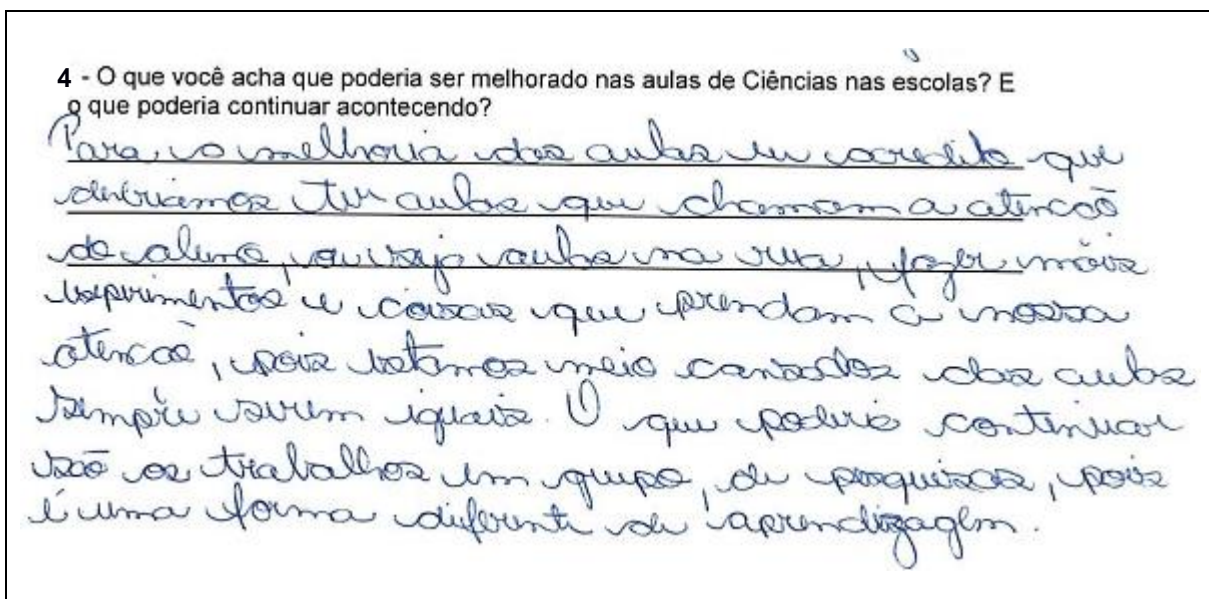 4 - O que você acha que poderia ser melhorado nas aulas de Ciências nas escolas? E
o que poderia continuar acontecendo?
Para, a melhoria das aulas eu acredito que
deveriamos ter aulas que chamam a atencaõ
do aluno, ou seja aulas na rua, fazer mais
experimentos e coisas que prendam a nossa
atencaõ, pois estamos meio cansados das aulas
sempre serem iguais. O que poderia continuar
saõ os trabalhos em grupo, de pesquisas, pois
é uma forma diferente de aprendizagem.